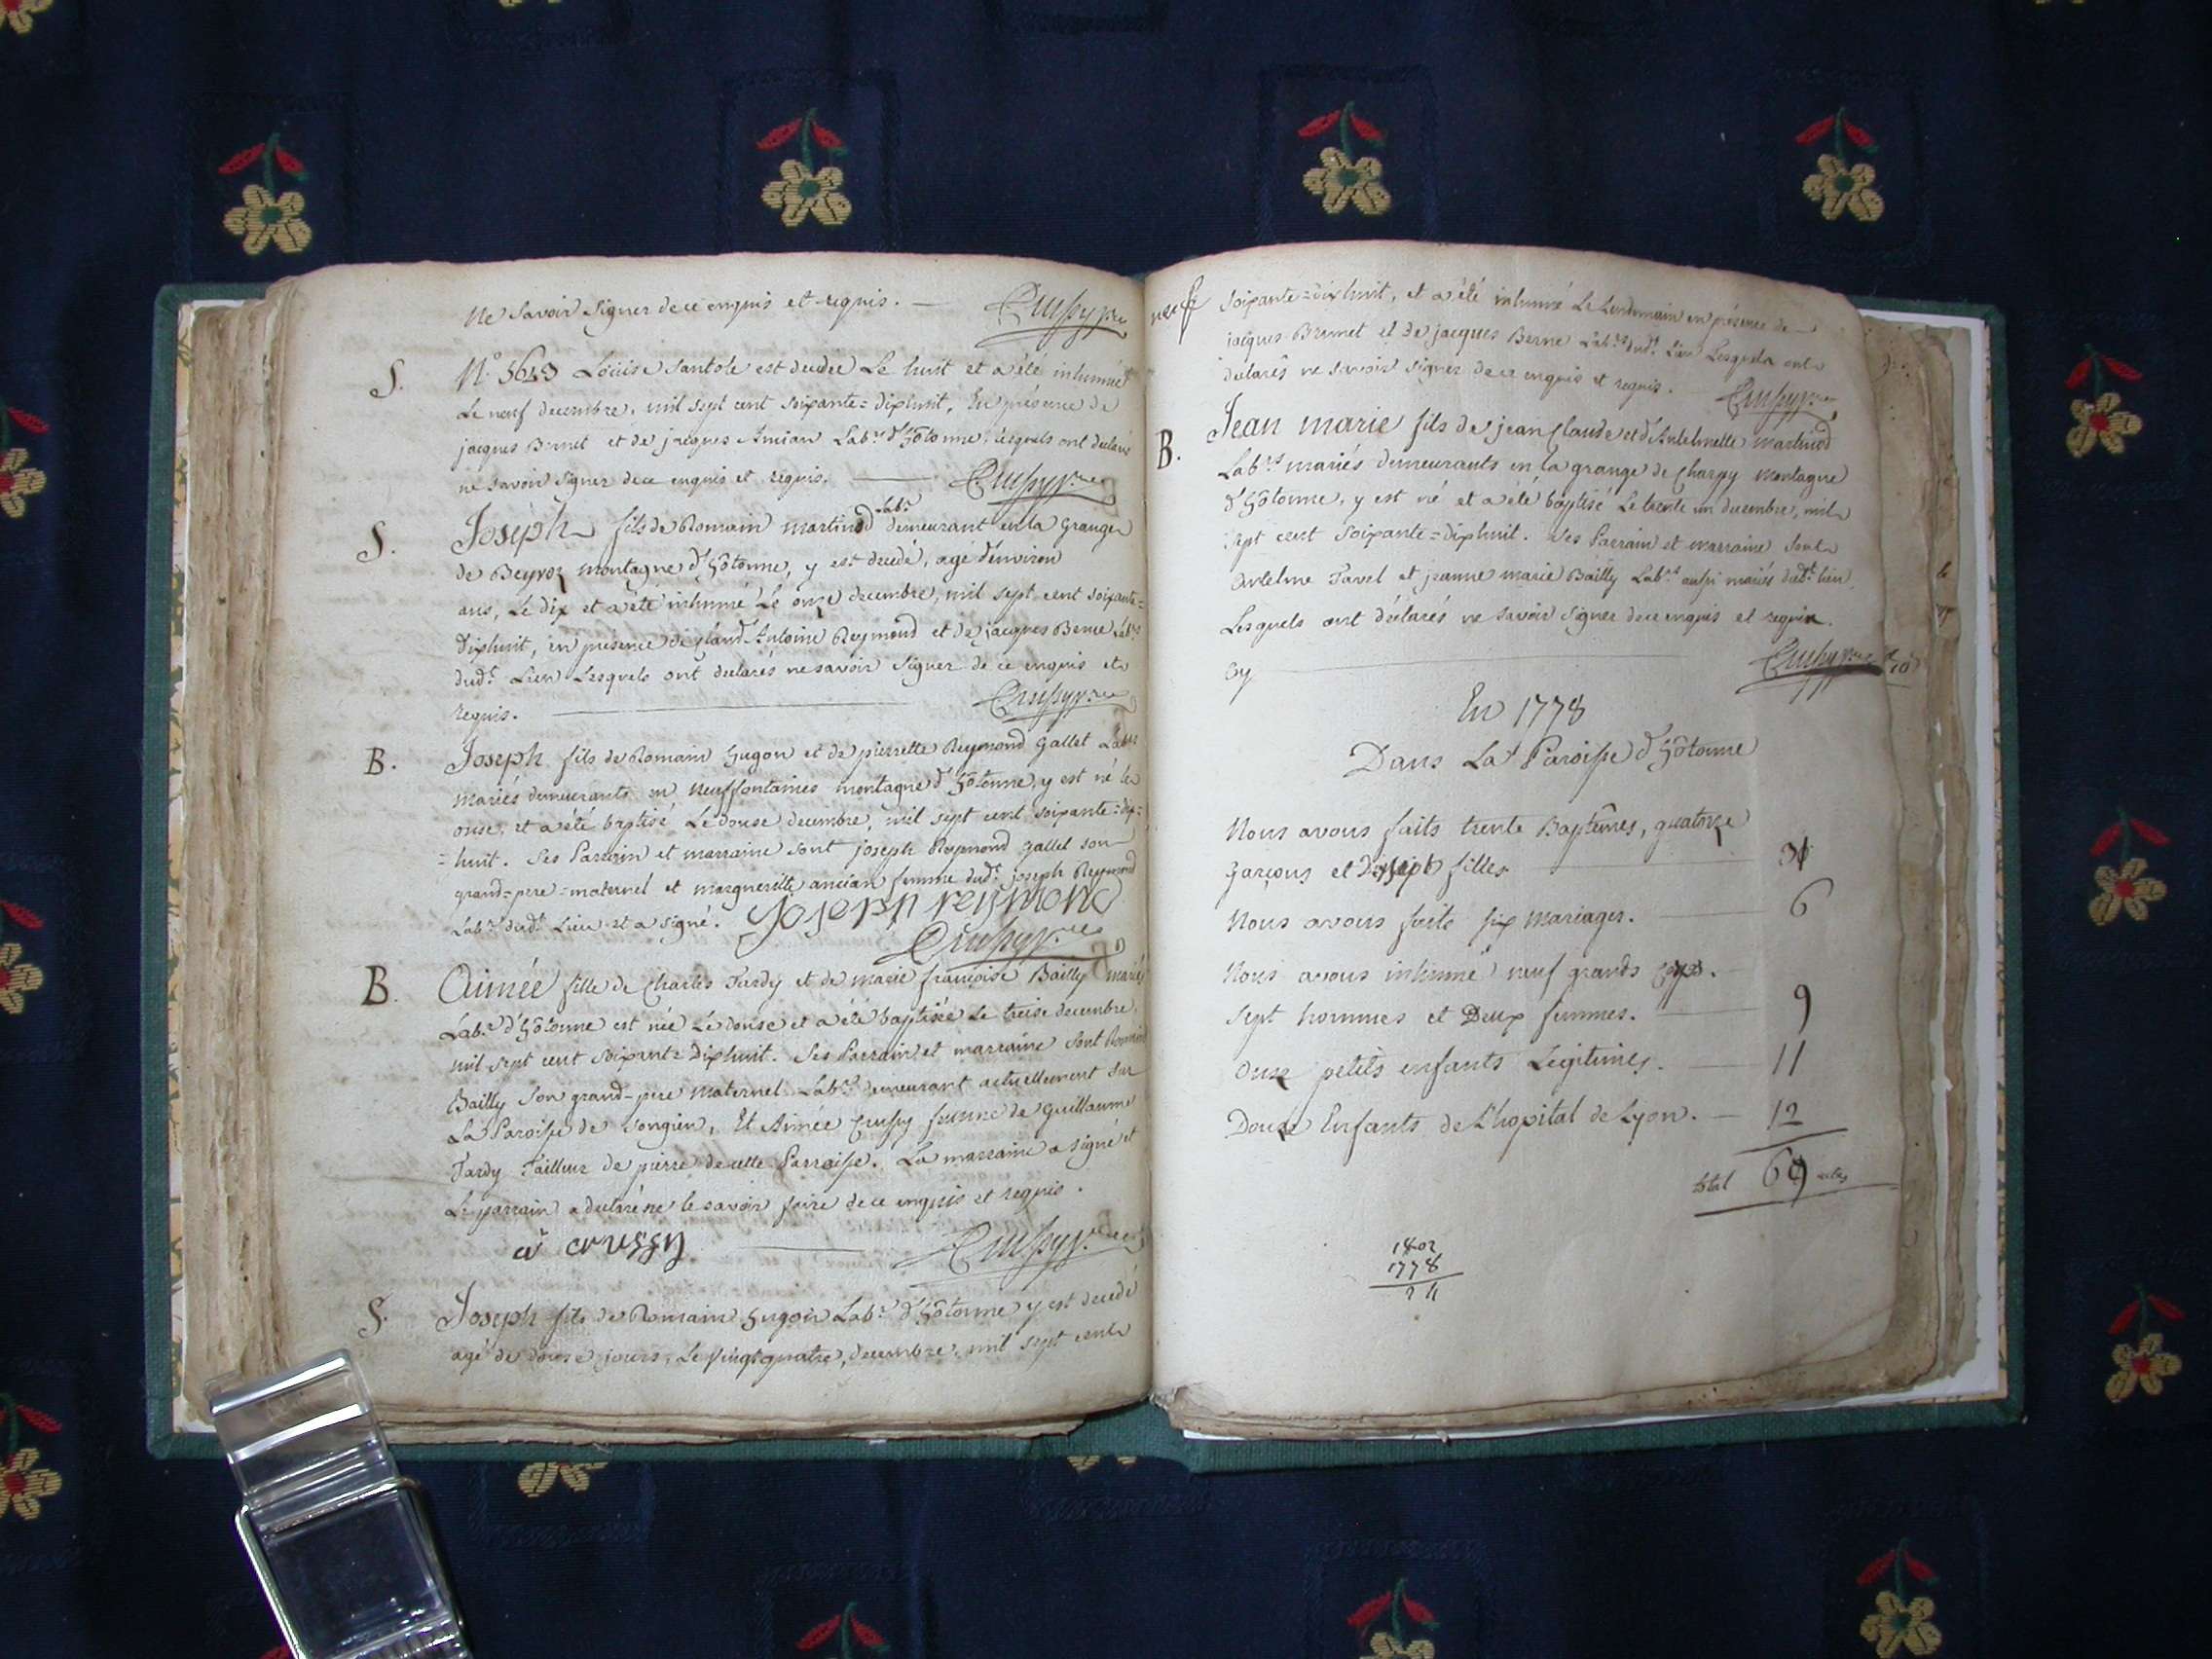 Ne savoir signer de ce enquis et requis. —
Cruspy vic
S.
N.° 5643 Louise Santole est decedée Le huit et a été inhumée
Le neuf decembre, mil sept cent soixante = dixhuit, En présence de
jacques Brunet et de jacques Ancian Lab.rs d'hôtonne, lesquels ont declaré
ne savoir signer de ce enquis et requis. —
S.
Joseph fils de Romain martinod Lab.r demeurant en la Grange
de Beyroz montagne d'hôtonne, y est decedé, agé d'environ
ans, Le dix et a été inhumé Le onze decembre, mil sept cent soixante =
dixhuit, en presence de Claud' Antoine Reymond et de jacques Berne Lab.rs
dud.t Lieu Lesquels ont declarés ne savoir signer de ce enquis et
requis.
B.
Joseph fils de Romain hugon et de pierrette Reymond Gallet Lab.rs
mariés demeurants en Neuffontaines montagne d'hôtonne, y est né le
onse, et a été baptisé Le douse decembre, mil sept cent soixante = dix =
= huit. Ses Parrain et marraine sont joseph Reymond gallet son
grand = pere = maternel et marguerite ancian femme dud.t joseph Reymond
Lab.r dud.t Lieu et a signé. Joseph reymond
B.
Aimée fille de Charles Tardy et de marie françoise Bailly mariés
Lab.rs d'hôtonne est née Le douse et a été baptisée Le treise decembre,
mil sept cent soixante = dixhuit. Ses Parrain et marraine sont Romain
Bailly son grand-pere maternel Lab.r demeurant actuellement sur
La Paroisse de Songieu, Et Aimée Crussy femme de Guillaume
Tardy Tailleur de pierre de cette Parroisse. La marraine a signé et
Le parrain a declaré ne le savoir faire de ce enquis et requis.
a crussy
S.
Joseph fils de Romain hugon Lab.r d'hôtonne y est decedé
agé de douse jours, Le vingt quatre, decembre, mil sept cent
soixante = dixhuit, et a été inhumé Le Lendemain en présence de
jacques Brunet et de jacques Berne Lab.rs dud.t Lieu Lesquels ont
declarés ne savoir signer de ce enquis et requis.
B.
Jean marie fils de jean Claude et d'Antelmette martinod
Lab.rs mariés demeurants en la grange de Charpy montagne
d'hôtonne, y est né et a été baptisé Le trente un decembre, mil
sept cent soixante = dixhuit. Ses Parrain et marraine sont
Antelme Favel et jeanne marie Bailly Lab.rs aussi mariés dud.t lieu
Lesquels ont déclarés ne savoir signer de ce enquis et requis.
En 1778
Dans La Paroisse d'hôtonne
Nous avons faits trente Baptêmes, quatorze
Garçons et Dixsept filles 31
Nous avons faits six mariages. — 6
Nous avons inhumé neuf grands corps.
Sept hommes et Deux femmes. — 9
Onze petits enfants Légitimes. — 11
Douze Enfants de L'hopital de Lyon. — 12
total 69 actes
1802
1778
24